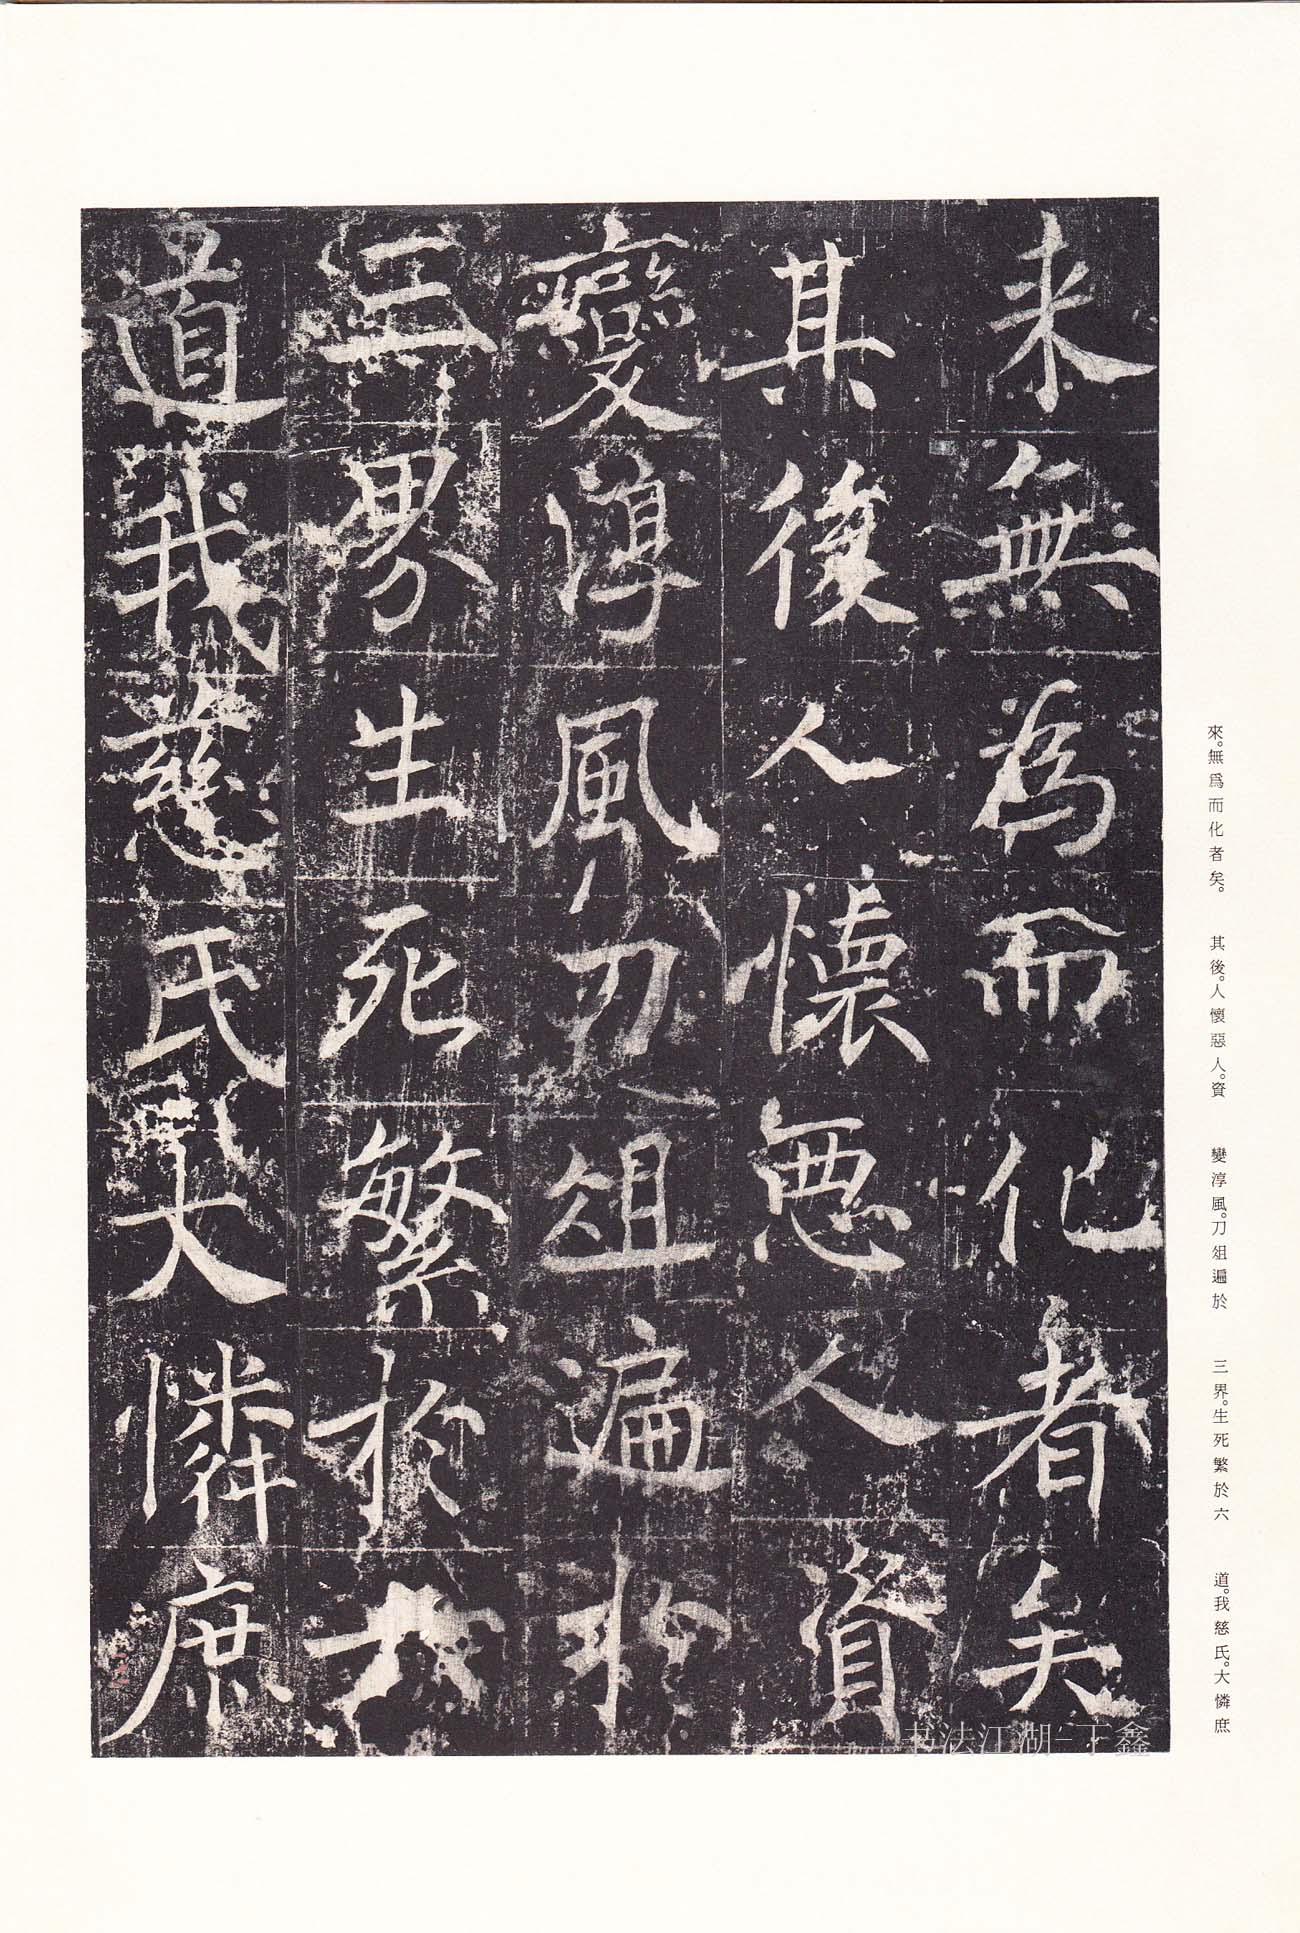 来無為而化者矣
其後人懷惡人資
變淳風刀俎遍於
三界生死繁於六
道我慈氏大憐庶
來。無爲而化者矣。 其後。人懷惡人。資 變淳風。刀俎遍於 三界。生死繁於六 道。我慈氏。大憐庶
书法江湖-丁鑫